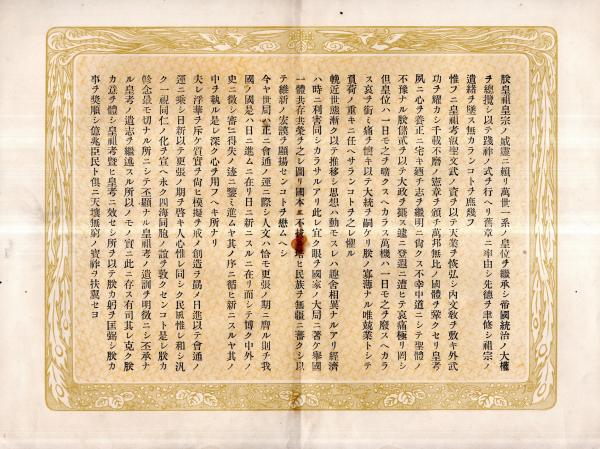 朕皇祖皇宗ノ威靈ニ賴リ萬世一系ノ皇位ヲ繼承シ帝國統治ノ大權
ヲ總攬シ以テ踐祚ノ式ヲ行ヘリ舊章ニ率由シ先德ヲ聿修シ祖宗ノ
遺緒ヲ墜ス無カランコトヲ庶幾フ
惟フニ皇祖考叡聖文武ノ資ヲ以テ天業ヲ恢弘シ內文敎ヲ敷キ外武
功ヲ耀カシ千載不磨ノ憲章ヲ頒チ萬邦無比ノ國體ヲ鞏クセリ皇考
夙ニ心ヲ養正ニ宅キ廼チ志ヲ繼明ニ尙クス不幸中道ニシテ聖體ノ
不豫ナル朕儲貳ヲ以テ大政ヲ攝ス遽ニ登遐ニ遭ヒテ哀痛極リ罔シ
但皇位ハ一日モ之ヲ曠クスヘカラス萬機ハ一日モ之ヲ廢スヘカラ
ス哀ヲ銜ミ痛ヲ懷キ以テ大統ヲ嗣ケリ朕ノ寡薄ナル唯兢業トシテ
負荷ノ重キニ任ヘサランコトヲ之レ懼ル
輓近世態漸ク以テ推移シ思想ハ動モスレハ趣舍相異ナルアリ經濟
ハ時ニ利害同シカラサルアリ此レ宜ク眼ヲ國家ノ大局ニ著ケ擧國
一體共存共榮ヲ之レ圖リ國本ニ不拔ニ培ヒ民族ヲ無疆ニ蕃クシ以
テ維新ノ宏謨ヲ顯揚センコトヲ懋ムヘシ
今ヤ世局ハ正ニ會通ノ運ニ際シ人文ハ恰モ更張ノ期ニ膺ル則チ我
國ノ國是ハ日ニ進ムニ在リ日ニ新ニスルニ在リ而シテ博ク中外ノ
史ニ徵シ審ニ得失ノ迹ニ鑒ミ進ムヤ其ノ序ニ循ヒ新ニスルヤ其ノ
中ヲ執ル是レ深ク心ヲ用フヘキ所ナリ
夫レ浮華ヲ斥ケ質實ヲ尙ヒ模擬ヲ戒メ創造ヲ勗メ日進以テ會通ノ
運ニ乘シ日新以テ更張ノ期ヲ啓キ人心惟レ同シク民風惟レ和シ汎
ク一視同仁ノ化ヲ宣ヘ永ク四海同胞ノ誼ヲ敦クセンコト是レ朕カ
軫念最モ切ナル所ニシテ丕顯ナル皇祖考ノ遺訓ヲ明徵ニシ丕承ナ
ル皇考ノ遺志ヲ繼述スル所以ノモノ實ニ此ニ存ス有司其レ克ク朕
カ意ヲ體シ皇祖考曁ヒ皇考ニ效セシ所ヲ以テ朕カ躬ヲ匡弼シ朕カ
事ヲ奬順シ億兆臣民ト俱ニ天壤無窮ノ寶祚ヲ扶翼セヨ